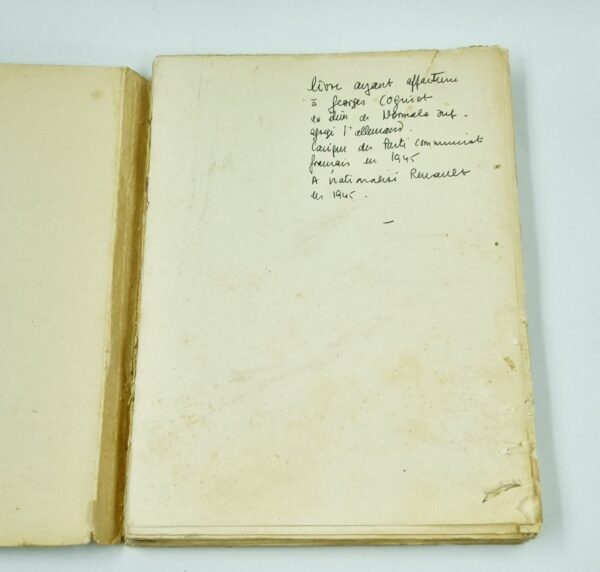 livre ayant appartenu
à Georges Cogniot
ex élève de Normale sup.
agrégé l'allemand.
Cacique du Parti communiste
français en 1945
A nationalisé Renault
en 1945.